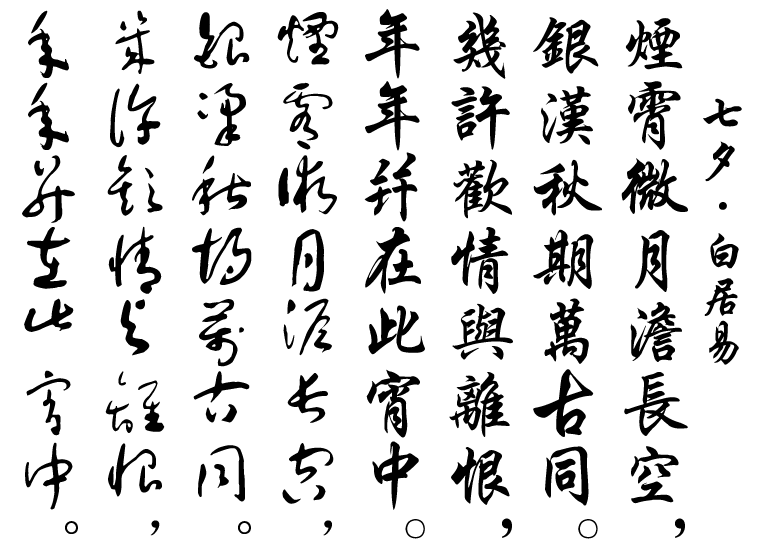 七夕・白居易
煙霄微月澹長空，
銀漢秋期萬古同。
幾許歡情與離恨，
年年并在此宵中。
煙霄微月澹長空，
銀漢秋期萬古同。
幾許歡情與離恨，
年年并在此宵中。